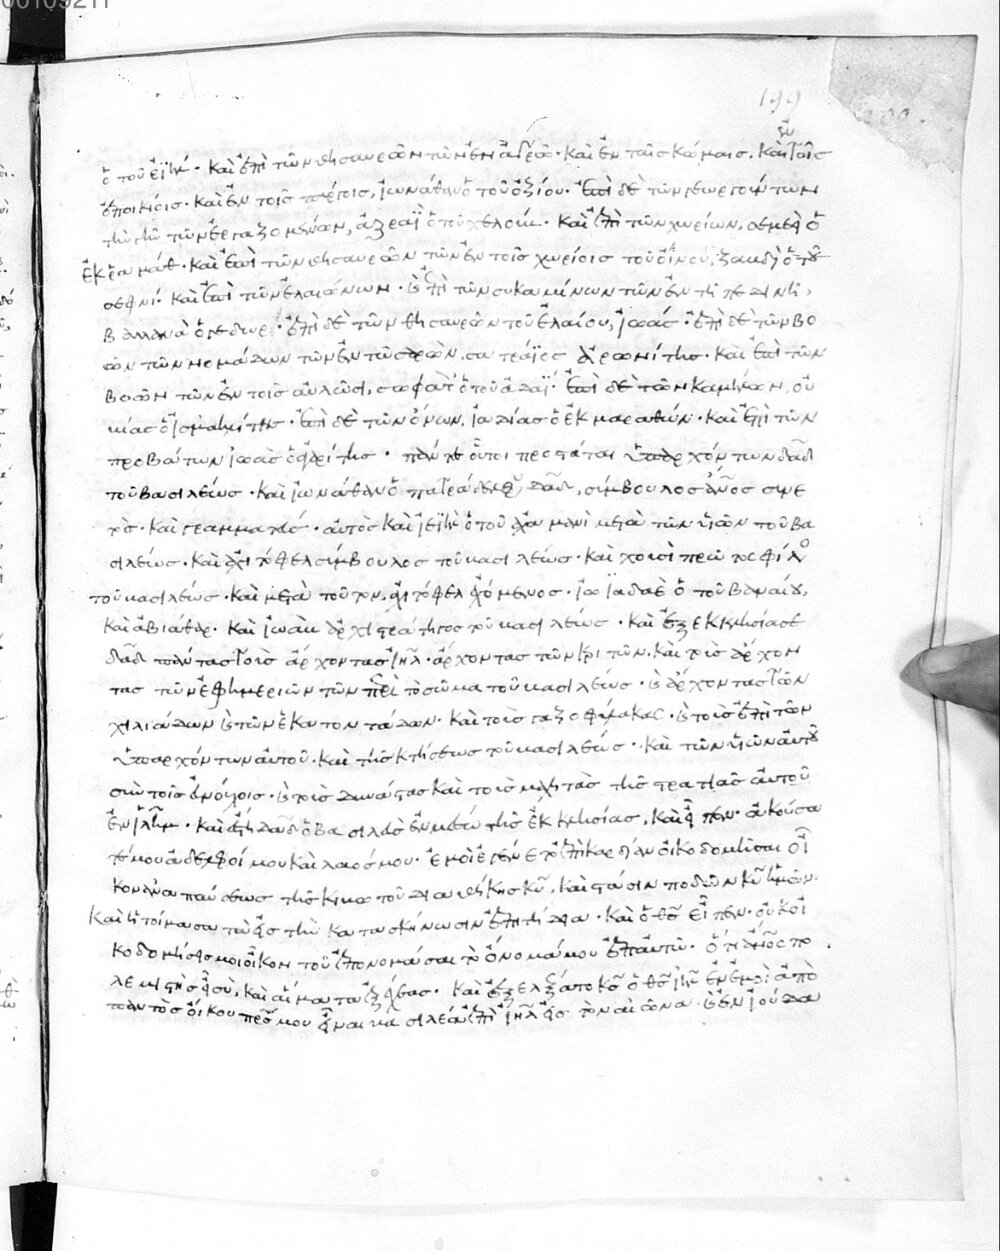 00109211
199
ὁ τοῦ ἐϊήλ· καὶ ἐπὶ τῶν θησαυρῶν τῶν ἐν ἀγρῶ· καὶ ἐν ταῖς κώμαις, καὶ τοῖς
ἐποικίοις· καὶ ἐν τοῖς πύργοις, ἰωνάθαν ὁ τοῦ ὀξίου· ἐπὶ δὲ τῶν γεωργούντων
τὴν γῆν τῶν ἐργαζομένων, ὁ τοῦ χελούβ· καὶ ἐπὶ τῶν χωρίων, σεμεῒ ὁ
ἐκ ῥαμάθ· καὶ ἐπὶ τῶν θησαυρῶν τῶν ἐν τοῖς χωρίοις τοῦ οἴνου, ζαβδὶ ὁ τοῦ
σεφνί· καὶ ἐπὶ τῶν ἐλαιώνων· καὶ ἐπὶ τῶν συκαμίνων τῶν ἐν τῇ πεδινῇ,
ἐπὶ δὲ τῶν θησαυρῶν τοῦ ἐλαίου, ἰωάς· ἐπὶ δὲ τῶν βο
ῶν τῶν νομάδων τῶν ἐν τῶ σαρὼν, σατραῒς ὁ σαρωνίτης· καὶ ἐπὶ τῶν
βοῶν τῶν ἐν τοῖς αὐλῶσι, σωφὰτ ὁ τοῦ ἀδαΐ· ἐπὶ δὲ τῶν καμήλων, οὐ
βίας ὁ ἰσμαηλίτης· ἐπὶ δὲ τῶν ὄνων, ἰαδίας ὁ ἐκ μαραθών· καὶ ἐπὶ τῶν
προβάτων ἰωὰς ὁ ἀγαρίτης· πάντες οὗτοι προστάται ὑπαρχόντων δαδ
τοῦ βασιλέως· καὶ ἰωνάθαν ὁ πατράδελφος δαδ, σύμβουλος ἄνος συνε
τὸς· καὶ γραμματεύς· αὐτὸς καὶ ἰεϊὴλ ὁ τοῦ ἀχαμανὶ μετὰ τῶν υἱῶν τοῦ βα
σιλέως· καὶ ἀχιτόφελ σύμβουλος τοῦ βασιλέως· καὶ χουσὶ πρῶτος φίλο
τοῦ βασιλέως· καὶ μετὰ τοῦτον, ἀχιτόφελ ἐχόμενος· ἰωϊαδαὲ ὁ τοῦ βαναίου,
καὶ ἀβιάθαρ· καὶ ἰωὰβ ἀρχιστράτηγος τοῦ βασιλέως· καὶ ἐξεκκλησίασε
δαδ πάντας τοὺς ἄρχοντας ιηλ· ἄρχοντας τῶν κριτῶν, καὶ τοὺς ἄρχον
τας τῶν ἐφημεριῶν τῶν περὶ τὸ σῶμα τοῦ βασιλέως· καὶ ἄρχοντας τῶν
χιλιάδων καὶ τῶν ἑκατοντάδων· καὶ τοὺς γαζοφύλακας· καὶ τοὺς ἐπὶ τῶν
ὑπαρχόντων αὐτοῦ· καὶ τῆς κτήσεως τοῦ βασιλέως· καὶ τῶν υἱῶν αὐτοῦ
σὺν τοῖς εὐνούχοις· καὶ τοὺς δυνάστας καὶ τοὺς μαχητὰς τῆς στρατιᾶς αὐτοῦ
ἐν ἱλημ· καὶ ἔστη δαδ ὁ βασιλεὺς ἐν μέσω τῆς ἐκκλησίας, καὶ εἶπεν· ἀκούσα
τέ μου ἀδελφοί μου καὶ λαός μου· ἐμοὶ ἐγένετο ἐπὶ καρδίαν οἰκοδομῆσαι οἶ
κον ἀναπαύσεως τῆς κιβωτοῦ διαθήκης κυ, καὶ στάσιν ποδῶν κυ ἡμῶν·
καὶ ἡτοίμασα τὰ εἰς τὴν κατασκήνωσιν ἐπιτήδεια· καὶ ὁ θς εἶπεν· οὐκ οἰ
κοδομήσεις μοι οἶκον τοῦ ἐπονομάσαι τὸ ὄνομά μου ἐπ αὐτῶ· ὅτι ἄνος πο
λεμιστὴς εἶ σὺ, καὶ αἵματα ἐξέχεας· καὶ ἐξελέξατο κς ὁ θς ιηλ ἐν ἐμοὶ ἀπὸ
παντὸς οἴκου πρς μου εἶναι βασιλέα ἐπὶ ιηλ εἰς τὸν αἰῶνα· καὶ ἐν ἰούδα